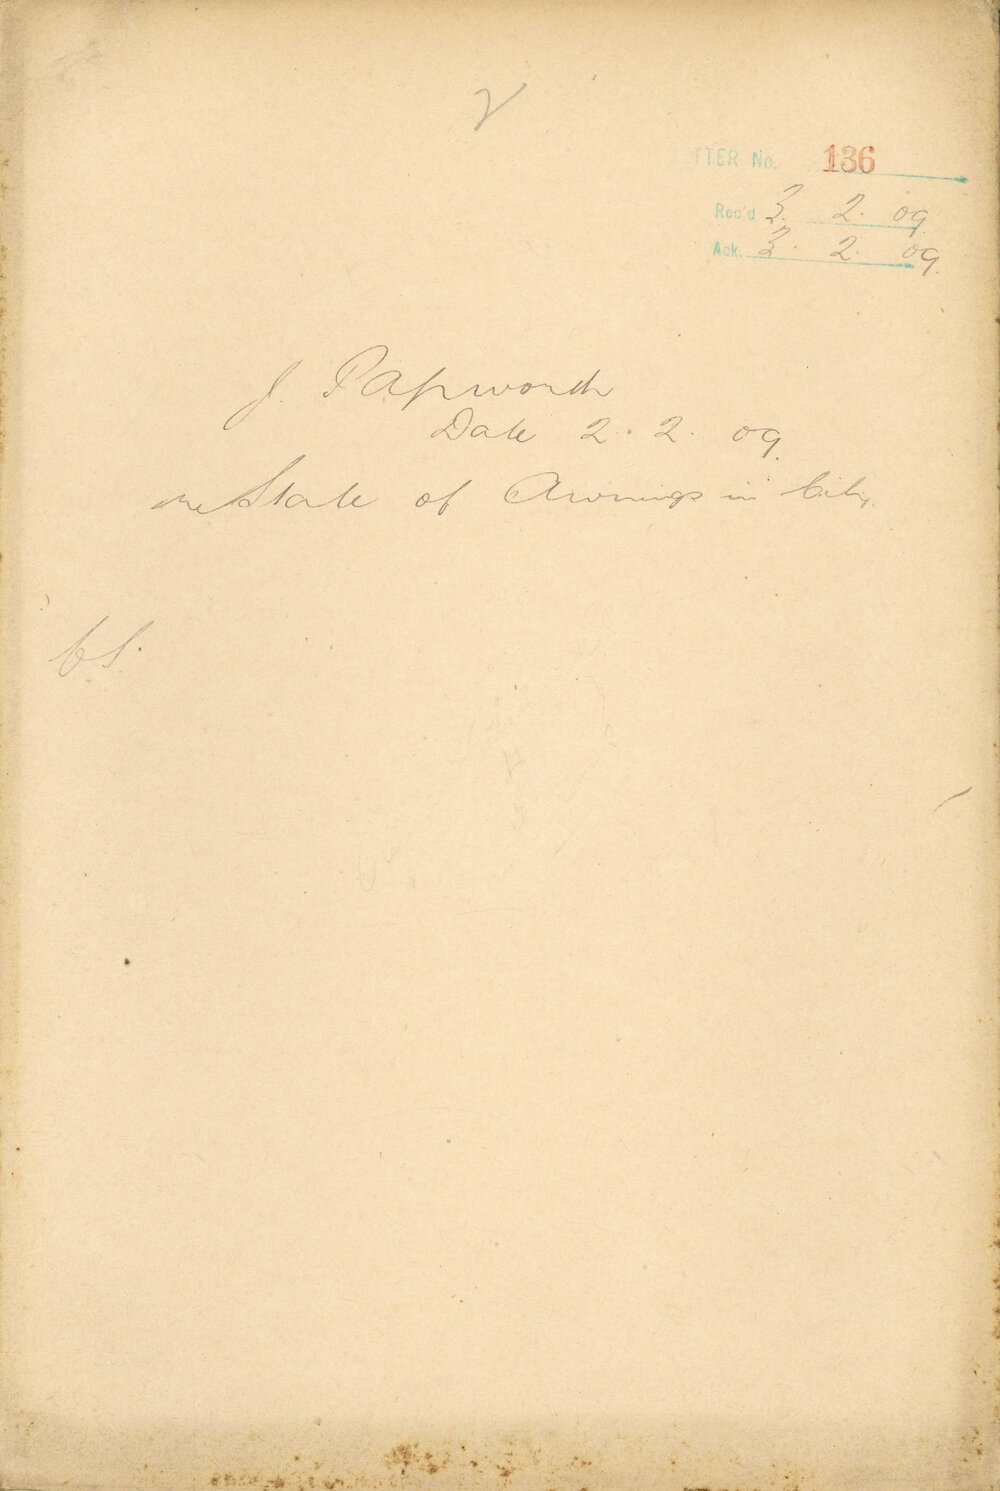 LETTER No. 136
Rec'd 3. 2. 09
Ack. 3. 2. 09.
J. Papworth
Date 2. 2. 09.
re State of Awnings in City.
C.S.